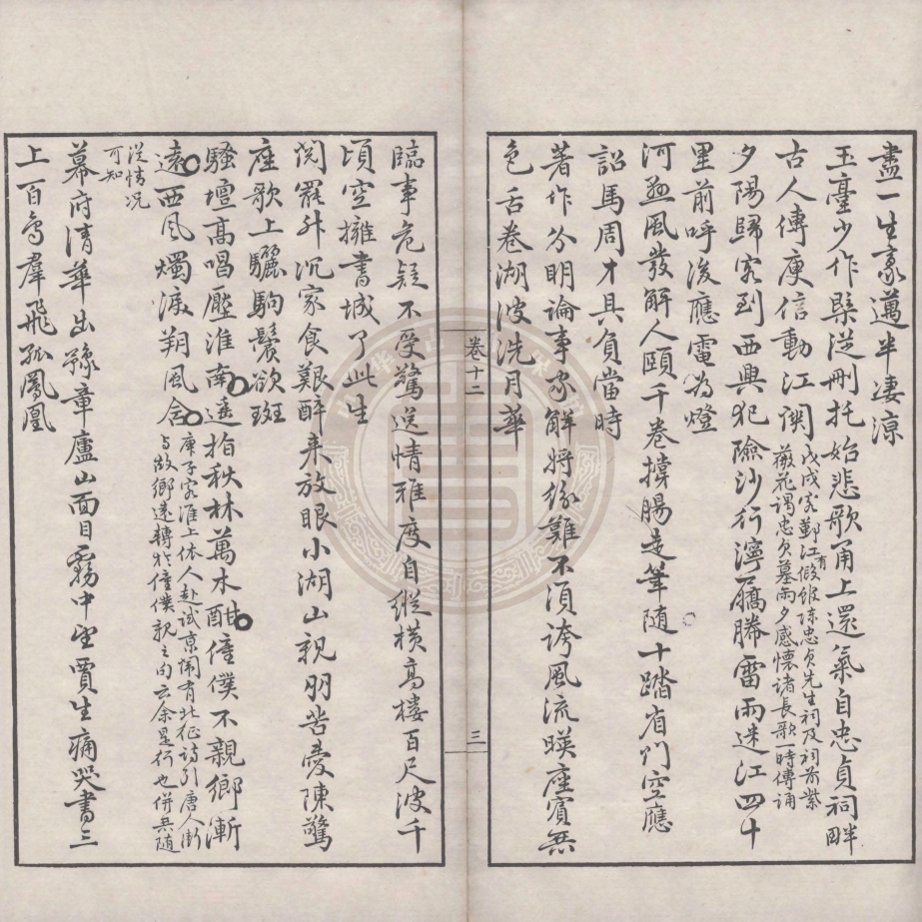 盡一生豪邁半淒涼
玉臺少作槩從刪托始悲歌甬上還氣自忠貞祠畔
古人傳庾信動江關
戊戌客鄞江假館陳忠貞先生祠有
薇花謁忠貞墓雨夕感懷諸長歌一時傳誦
夕陽歸客到西興犯險沙行濘屩勝雷雨迷江四十
里前呼後應電為燈
河亟風發解人頤千卷撐腸走筆隨十踏省門空應
詔馬周才具負當時
著作分明論事家解將紛難不須誇風流暎座賓無
色舌卷湖波洗月華
卷十二
三
臨事危疑不受驚送情雅度自縱橫高樓百尺波千
頃空擁書城了此生
閱罷升沉家食艱醉来放眼小湖山親朋苦愛陳驚
座歌上驪駒鬢欲斑
騷壇高唱壓淮南遥指秋林萬木酣僮僕不親鄉漸
遠西風燭淚翔風舍
庚子客淮上依人赴试京闱有北征詩引唐人漸
与故鄉遠轉於僮僕親之句云余是行也併無随
從情况
可知
幕府清華出豫章廬山面目霧中望賈生痛哭書三
上百鳥羣飛孤鳳凰